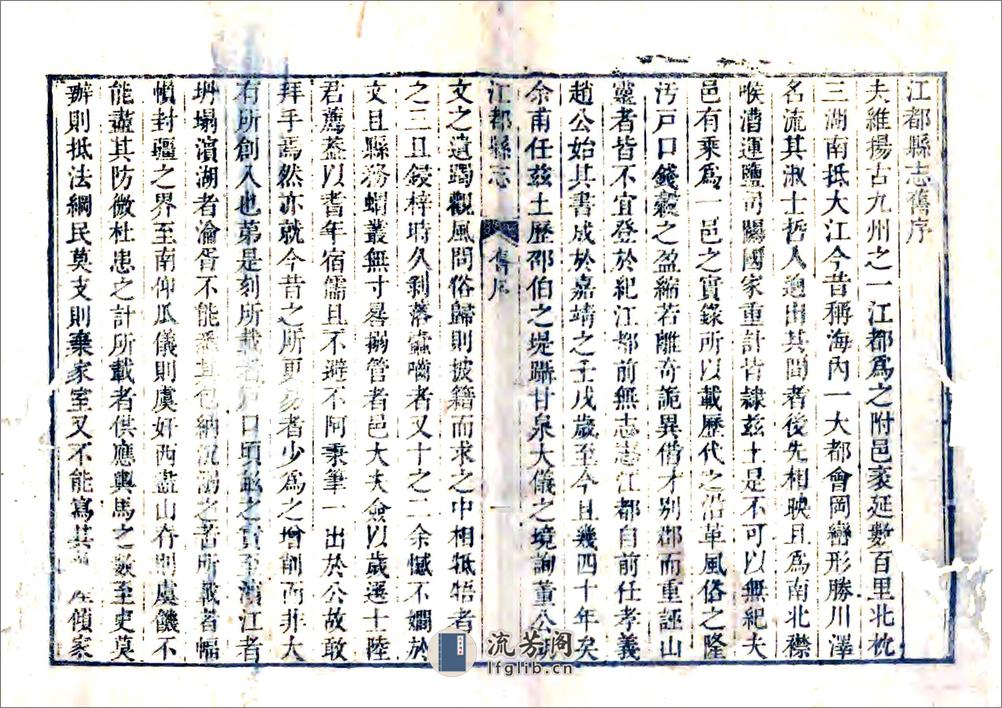 江都縣志舊序
夫維揚古九州之一江都爲之附邑袤延數百里北枕
三湖南抵大江今昔稱海內一大都會岡巒形勝川澤
名流其淑士哲人迥出其間者後先相映且爲南北襟
喉漕運鹽司關國家重計皆隸茲土是不可以無紀夫
邑有乘爲一邑之實錄所以載歷代之沿革風俗之隆
污戸口錢糓之盈縮若離奇詭異借才别郡而重誣山
靈者皆不宜登於紀江都前無志志江都自前任孝義
趙公始其書成於嘉靖之壬戌歲至今且幾四十年矣
余甫任茲土歷邵伯之堤躡甘泉大儀之境詢董公
江都縣志 舊序 一
文之遺躅觀風問俗歸則披籍而求之中相牴牾者
之三且鋟梓時久剝落蠧嚙者又十之二余憾不嫺於
文且縣務蝟叢無寸晷搦管者邑大夫僉以歲選士陸
君應葢以耆年宿儒且不避不阿秉筆一出於公故敢
拜手焉然亦就今昔之所更易者少爲之增削而非大
有所創入也第是刻所載 戸口頃畝之寔至濱江者
坍塌濱湖者淪胥不能悉其包納沉溺之苦所載者幅
幀封疆之界至南仰瓜儀則虞奸西盡山存則虞饑不
能盡其防微杜患之計所載者供應輿馬之數至吏莫
辦則抵法網民莫支則棄家室又不能寫其 傾家
流芳阁
lfglib.cn